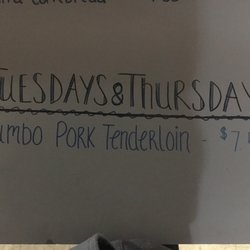 TUESDAYS & THURSDAY
umbo PORK Tenderloin - $7.